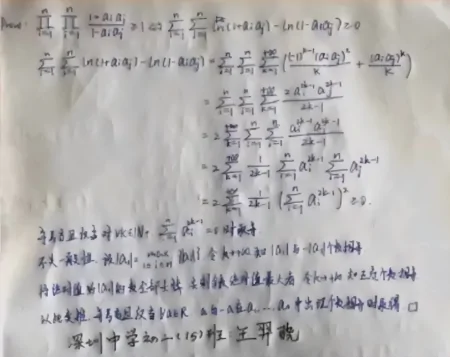 Prove: ∏_{i=1}^{n} ∏_{j=1}^{n} (1+a_i a_j)/(1-a_i a_j) ≥ 1 ⇔ ∑_{i=1}^{n} ∑_{j=1}^{n} ln(1+a_i a_j) - ln(1-a_i a_j) ≥ 0
∑_{i=1}^{n} ∑_{j=1}^{n} ln(1+a_i a_j) - ln(1-a_i a_j) = ∑_{i=1}^{n} ∑_{j=1}^{n} ∑_{k=1}^{+∞} ((-1)^{k-1}(a_i a_j)^k/k + (a_i a_j)^k/k)
= ∑_{i=1}^{n} ∑_{j=1}^{n} ∑_{k=1}^{+∞} 2a_i^{2k-1} a_j^{2k-1}/(2k-1)
= 2 ∑_{k=1}^{+∞} ∑_{i=1}^{n} ∑_{j=1}^{n} a_i^{2k-1} a_j^{2k-1}/(2k-1)
= 2 ∑_{k=1}^{+∞} 1/(2k-1) ∑_{i=1}^{n} a_i^{2k-1} ∑_{j=1}^{n} a_j^{2k-1}
= 2 ∑_{k=1}^{+∞} 1/(2k-1) (∑_{i=1}^{n} a_i^{2k-1})² ≥ 0.
等号当且仅当对∀k∈N+, ∑_{i=1}^{n} a_i^{2k-1} = 0 时取等
不失一般性, 设|a_1| = max_{1≤i≤n} |a_i| 令k→+∞知|a_1|与-|a_1|个数相等
将绝对值为|a_1|的数全部去掉, 去剩余绝对值最大者 令k→+∞知正负个数相等
以此类推, 等号当且仅当∀a∈R a与-a在a_1,…,a_n中出现个数相等时取得 □
深圳中学初二(15)班 王羿